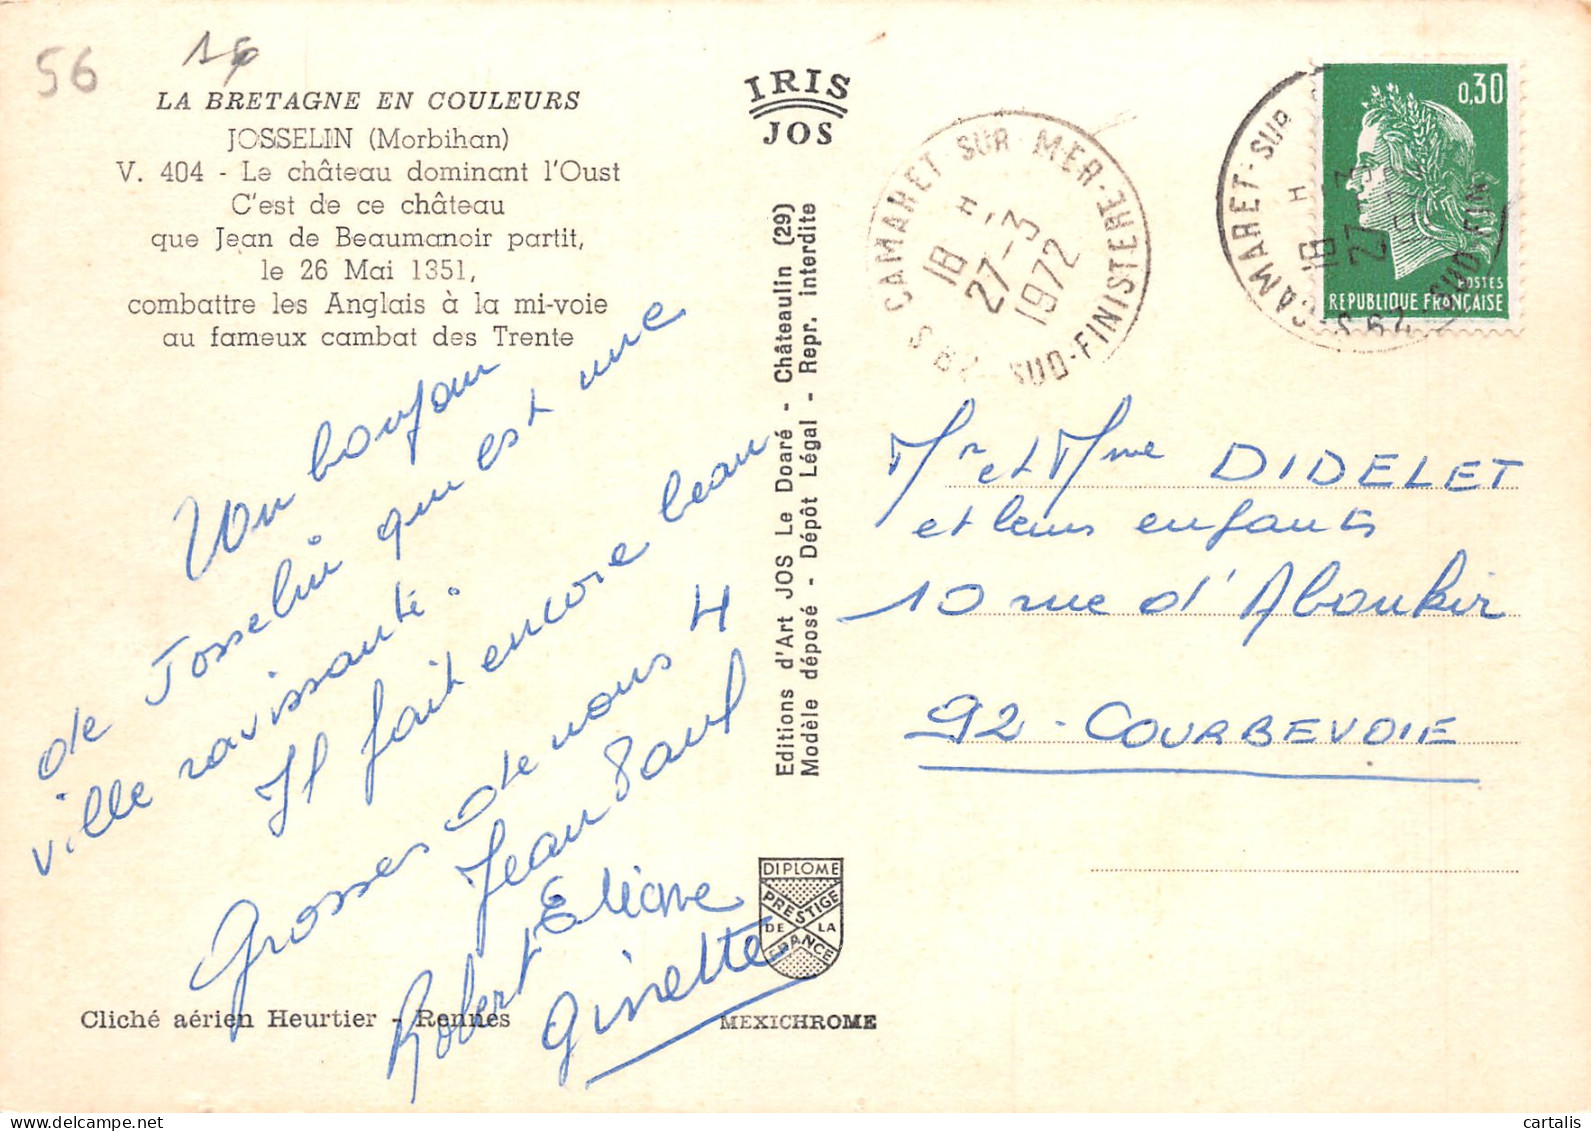 56
LA BRETAGNE EN COULEURS
JOSSELIN (Morbihan)
V. 404 - Le château dominant l'Oust
C'est de ce château
que Jean de Beaumanoir partit,
le 26 Mai 1351,
combattre les Anglais à la mi-voie
au fameux cambat des Trente
Un bonjour
de Josselin qui est une
ville ravissante.
Il fait encore beau
Grosses de nous 4
Jean Paul
Eliane
Robert
Ginette
Cliché aérien Heurtier - Rennes
IRIS
JOS
Editions d'Art JOS Le Doaré - Châteaulin (29)
Modèle déposé - Dépôt Légal - Repr. interdite
DIPLOME
PRESTIGE
DE LA
FRANCE
MEXICHROME
CAMARET-SUR-MER-FINISTERE
18 H
27-3
1972
SUD-FINISTERE
0,30
POSTES
REPUBLIQUE FRANÇAISE
CAMARET-SUR
18 H
27-3
SUD-FIN
Mr et Mme DIDELET
et leurs enfants
10 rue d'Aboukir
92 - COURBEVOIE
cartalis
delcampe.net